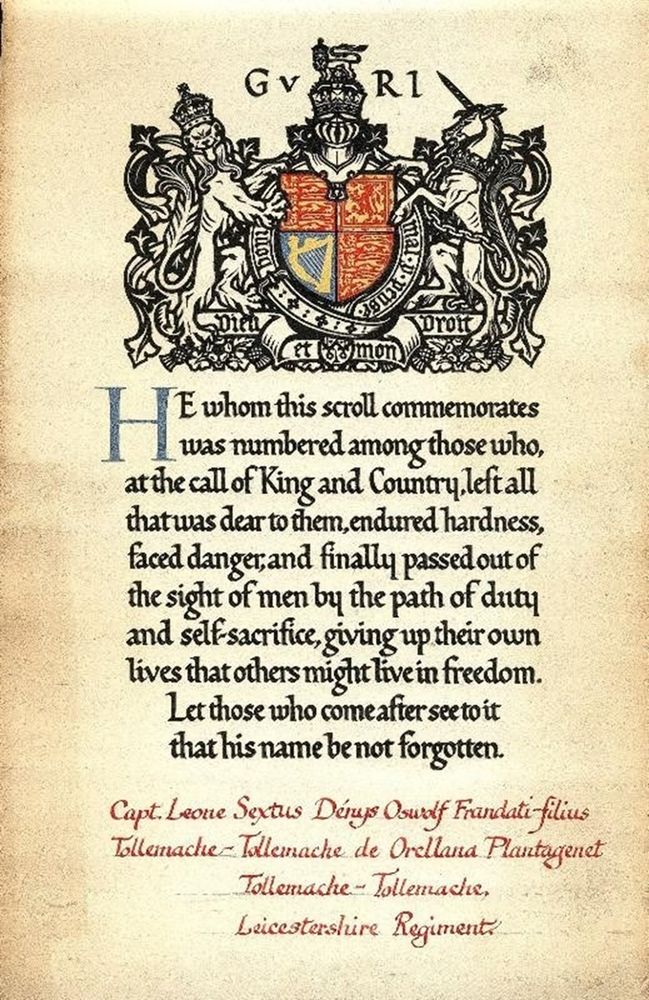 G V R I
Honi soit qui mal y pense
Dieu et mon Droit
HE whom this scroll commemorates
was numbered among those who,
at the call of King and Country, left all
that was dear to them, endured hardness,
faced danger, and finally passed out of
the sight of men by the path of duty
and self-sacrifice, giving up their own
lives that others might live in freedom.
Let those who come after see to it
that his name be not forgotten.
Capt. Leone Sextus Denys Oswolf Frandati-filius
Tollemache-Tollemache de Orellana Plantagenet
Tollemache-Tollemache,
Leicestershire Regiment.